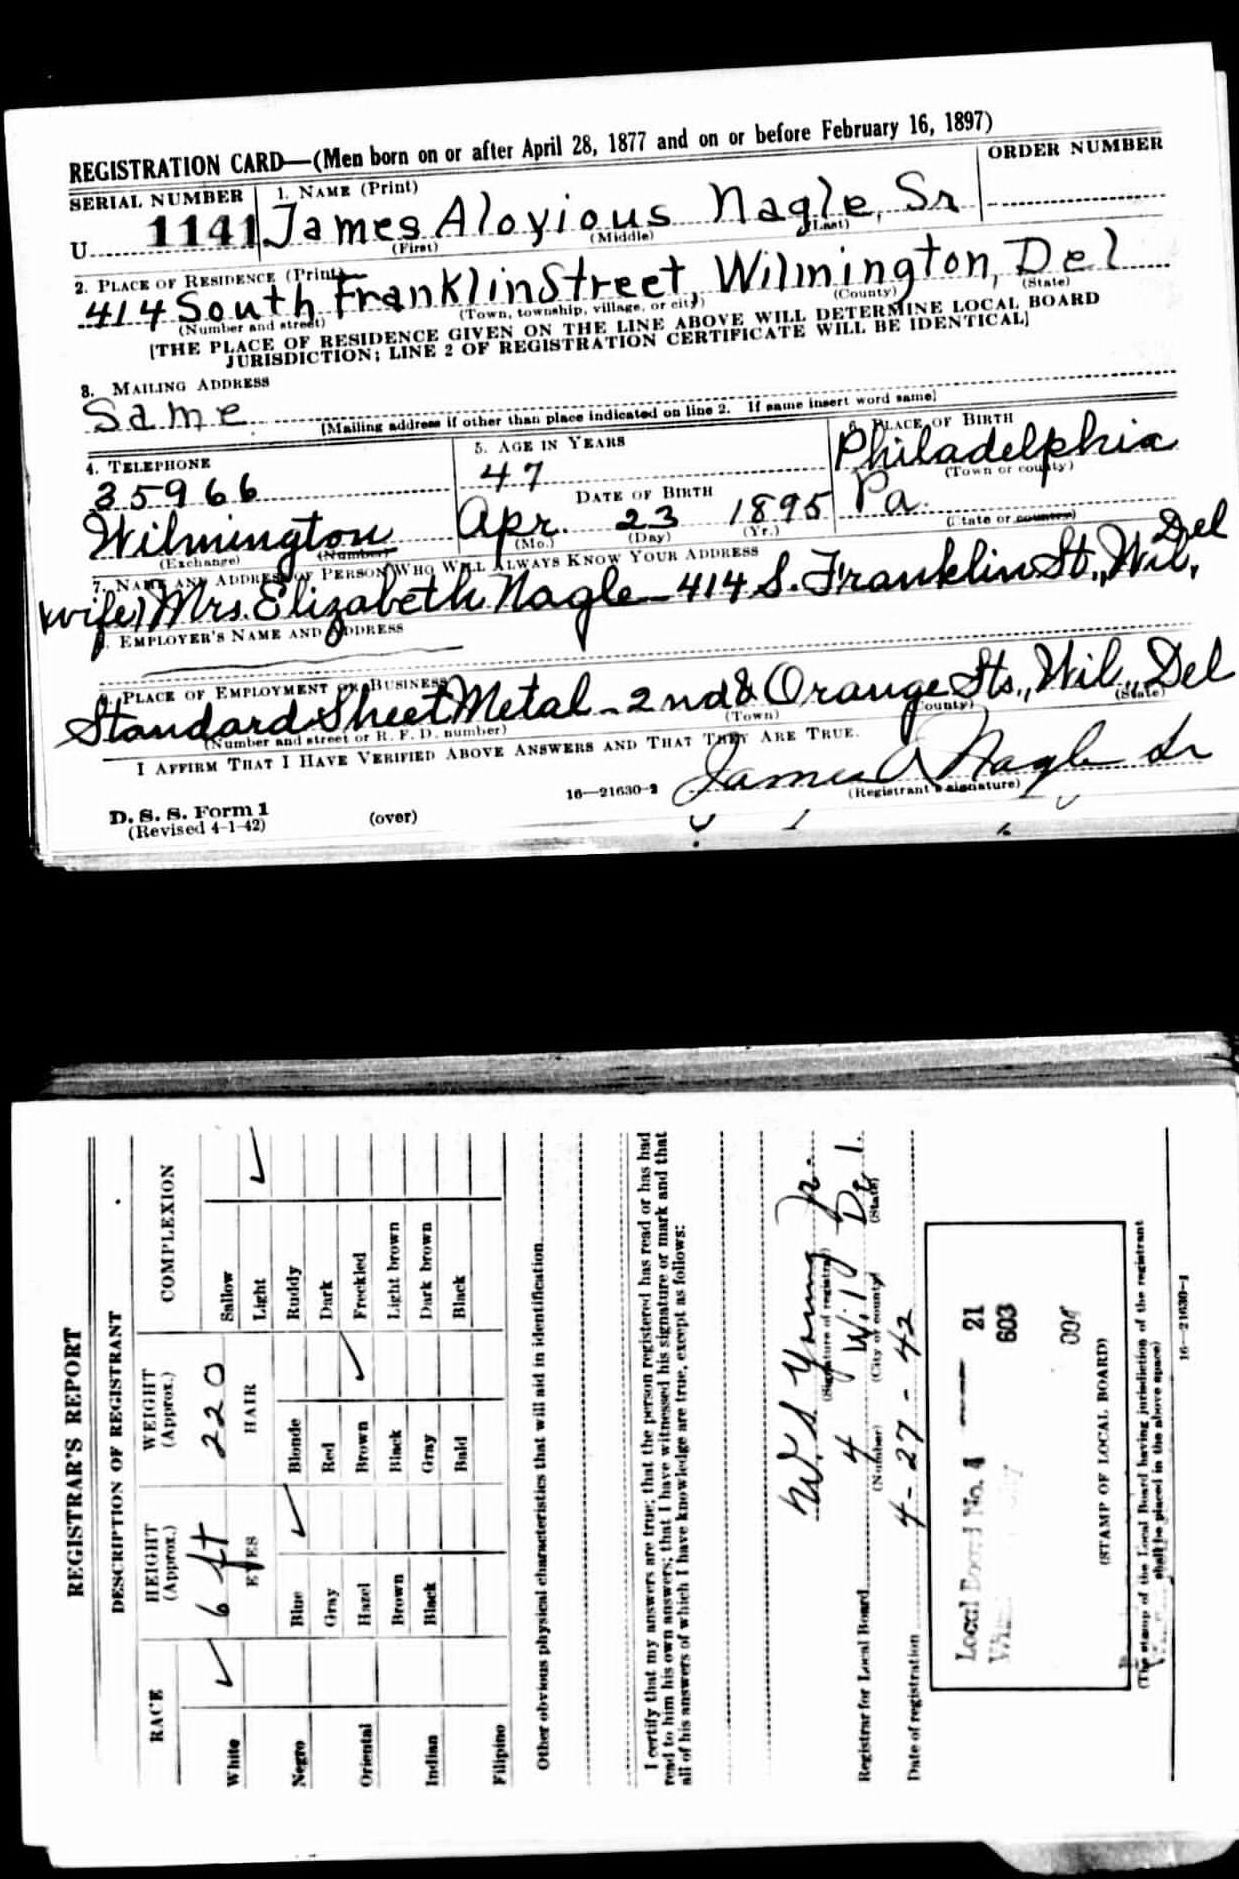 REGISTRATION CARD—(Men born on or after April 28, 1877 and on or before February 16, 1897)
SERIAL NUMBER
1. NAME (Print)
ORDER NUMBER
U 1141
James Aloyious Nagle, Sr
(First) (Middle) (Last)
2. PLACE OF RESIDENCE (Print)
414 South Franklin Street, Wilmington, Del
(Number and street) (Town, township, village, or city) (County) (State)
[THE PLACE OF RESIDENCE GIVEN ON THE LINE ABOVE WILL DETERMINE LOCAL BOARD
JURISDICTION; LINE 2 OF REGISTRATION CERTIFICATE WILL BE IDENTICAL]
3. MAILING ADDRESS
Same
[Mailing address if other than place indicated on line 2. If same insert word same]
4. TELEPHONE
35966
Wilmington
(Exchange) (Number)
5. AGE IN YEARS
47
DATE OF BIRTH
Apr. 23 1895
(Mo.) (Day) (Yr.)
6. PLACE OF BIRTH
Philadelphia
(Town or county)
Pa.
(State or country)
7. NAME AND ADDRESS OF PERSON WHO WILL ALWAYS KNOW YOUR ADDRESS
(wife) Mrs. Elizabeth Nagle - 414 S. Franklin St., Wil, Del
8. EMPLOYER'S NAME AND ADDRESS
9. PLACE OF EMPLOYMENT OR BUSINESS
Standard Sheet Metal - 2nd & Orange Sts., Wil., Del
(Number and street or R. F. D. number) (Town) (County) (State)
I AFFIRM THAT I HAVE VERIFIED ABOVE ANSWERS AND THAT THEY ARE TRUE.
James A Nagle Sr
(Registrant's signature)
D. S. S. Form 1
(Revised 4-1-42)
(over)
16—21630-2
REGISTRAR'S REPORT
DESCRIPTION OF REGISTRANT
RACE
HEIGHT
(Approx.)
WEIGHT
(Approx.)
COMPLEXION
White ✓
6 ft
220
Sallow
EYES
HAIR
Light ✓
Negro
Blue ✓
Blonde
Ruddy
Gray
Red
Dark
Oriental
Hazel
Brown ✓
Freckled
Brown
Black
Light brown
Indian
Black
Gray
Dark brown
Bald
Black
Filipino
Other obvious physical characteristics that will aid in identification
I certify that my answers are true; that the person registered has read or has had
read to him his own answers; that I have witnessed his signature or mark and that
all of his answers of which I have knowledge are true, except as follows:
W. S. Young Jr.
(Signature of registrar)
Registrar for Local Board 4 Wil Del.
(Number) (City or county) (State)
Date of registration 4-27-42
Local Board No. 4 21
603
004
(STAMP OF LOCAL BOARD)
(The stamp of the Local Board having jurisdiction of the registrant
shall be placed in the above space)
16—21630-1